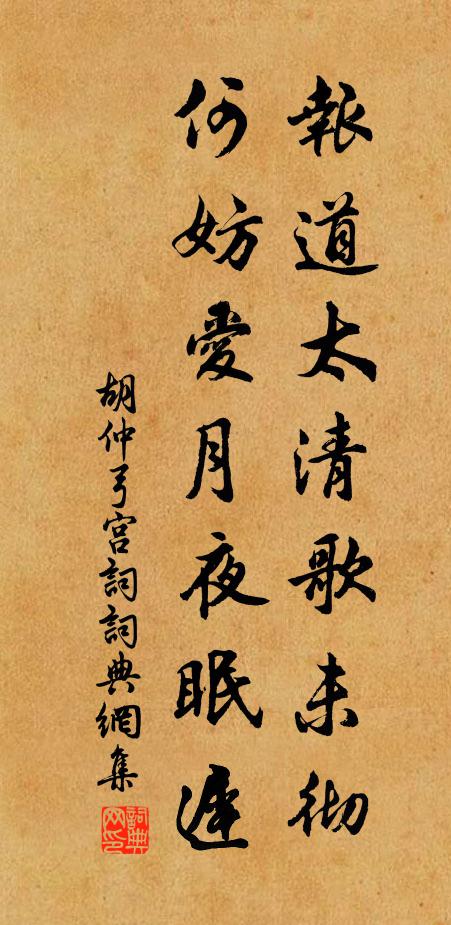 報道太清歌未徹
何妨愛月夜眠遲
胡仲弓宮詞詞典網集
詞典网印